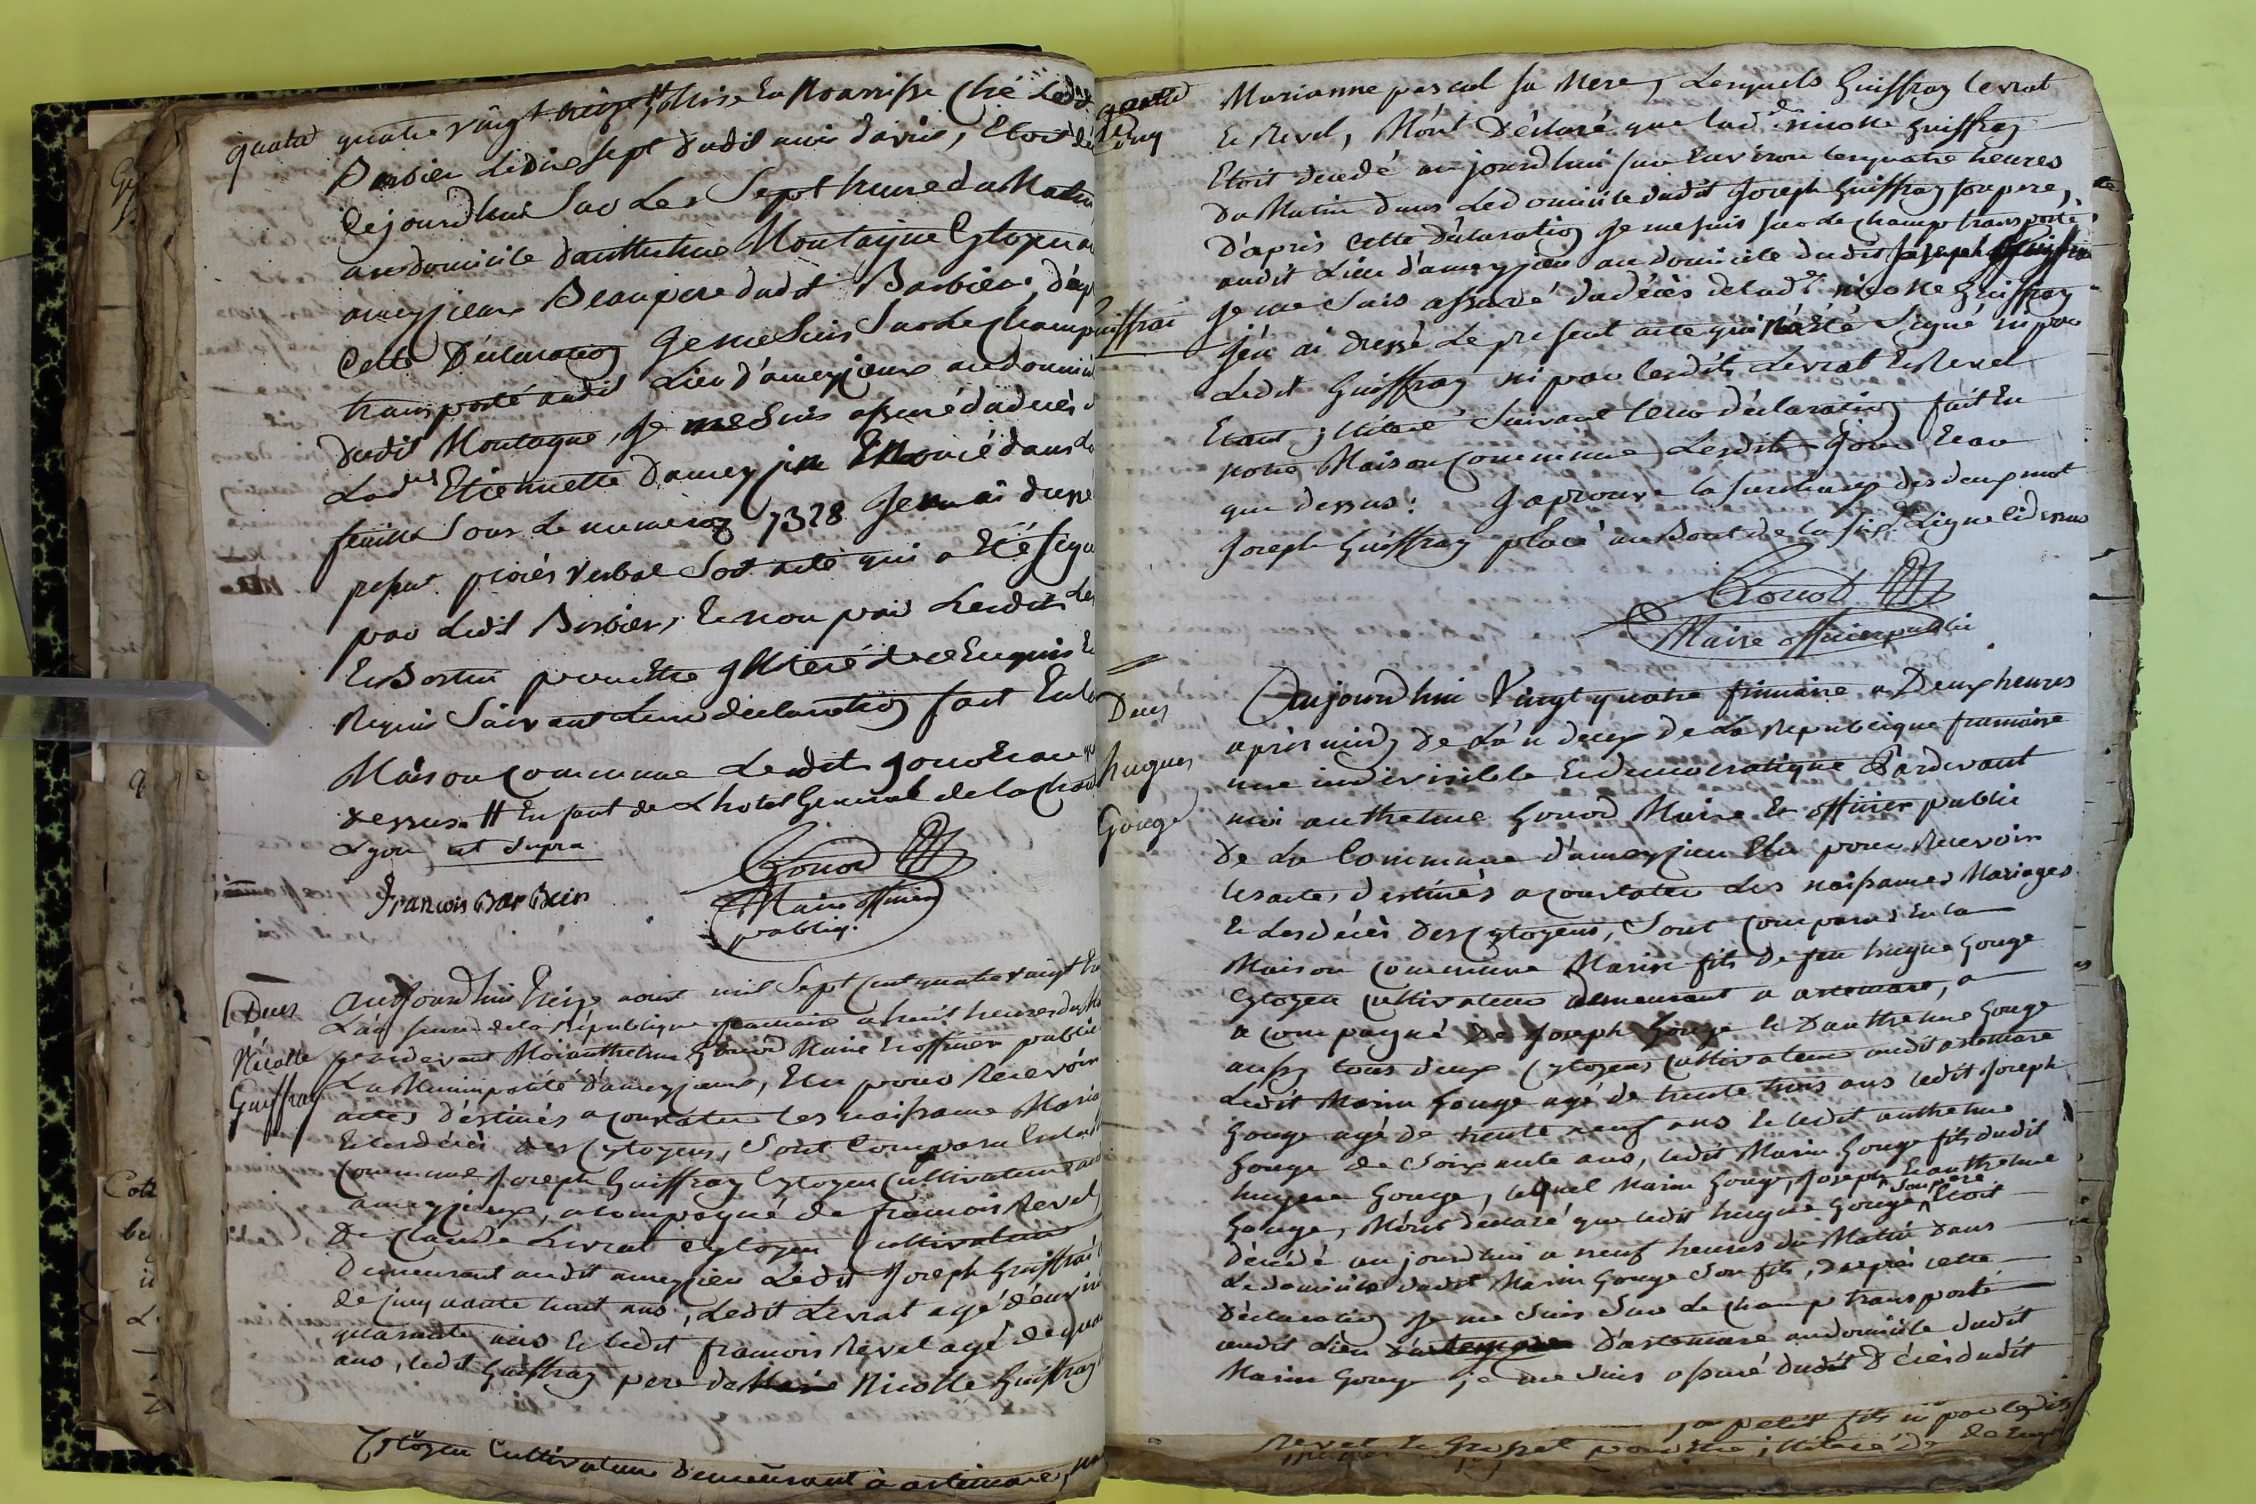 quatre vingt treize # Mise En Nourrisse Ché Ledit
Barbier Ledix Sept dudit mois davril, Etoit de
Cejourdhui Sur Les Sept heure du Matin
au domicile danthelme Montagne Cytoyen
ameyzieux Beaupere dudit Barbier, d'apr
Cette Déclaration Je me Suis Sur Le champ
transporté audit Lieu d'ameyzieux au domicil
dudit Montagne, Je me Suis assuré du decès
Lade Etiennette Dameyzin Enoncé dans La
feuille Sous Le numero 7328 Jen ai dressé
present procés verbal Soit acte qui a Eté Signé
par Ledit Barbier, Et non par Lesdits
Et Bertin pour Ettre illiteré de ce Enquis Et
Requis Suivant Leur declaration fait En la
Maison Commune Lesdits Jour Et an que
dessus. # Enfant de Lhotel General de la charité
Lyon ut Supra
François Barbier
Gonod
Maire officier
public.
Deces
Nicolle
Guiffray
Aujourdhui treize aoust mil Sept Cent quatre vaingt
Lan Second de la République francaise a huit heures du Ma
pardevant Moi anthelme Gonod Maire Et officier public
La Municipalité d'ameyzieux, Elu pour Recevoir
actes d'éstinés a constater les naissance Maria
Et les décès des Cytoyens, Sont Comparu En la
Commune Joseph Guiffray Cytoyen Cultivateur
ameyzieux, acompagné de francois Revel
De Claude Levrat Cytoyen Cultivateur
Demeurant audit ameyzieu Ledit Joseph Guiffrai
de cinquante huit ans, Ledit Levrat agé d'environ
quarante ans Et Ledit francois Revel agé de
ans, Ledit Guiffray pere de Nicolle Guiffray
Cytoyen Cultivateur Demeurant à artemare
Marianne pascal Sa Mere, Lesquels Guiffray Levrat
Et Revel, M'ont Déclaré que lade nicolle Guiffray
Etoit decedé aujourdhui Sur Environ les quatre heures
Du Matin dans Le domicile dudit Joseph Guiffray Son pere,
D'aprés Cette Déclaration Je me suis Sur Le champ transporté
audit Lieu d'ameyzieu au domicile dudit Joseph Guiffray
Je me Suis assuré du décès de lade nicolle Guiffray
J'en ai dressé Le present acte qui n'a Eté Signé ni par
Ledit Guiffray ni par lesdits Levrat Et Revel
Etant illiteré Suivant leur déclaration fait En
notre Maison Commune Lesdits Jour Et an
que dessus. J'aprouve la Surcharge des deux mot
Joseph Guiffray placé au Bout de la Sixe Ligne Cidessus
Gonod
Maire officier public
Deces
hugues
Gouge
Aujourdhui Vingt quatre frimaire a Deux heures
après midy de L'an deux de La Republique francaise
une indivisible Et democratique Pardevant
moi anthelme Gonod Maire Et officier public
De La Commune d'ameyzieu Elu pour Recevoir
les actes destinés a constater Les naissances Mariages
Et Les décès des Cytoyens, Sont Comparus En la
Maison Commune Marin fils de feu hugue Gouge
Cytoyen Cultivateur demeurant a artemare, a
acompagné de Joseph Gouge Et Danthelme Gouge
aussy tous deux Cytoyens Cultivateur audit artemare
Ledit Marin Gouge agé de trente trois ans ledit Joseph
Gouge agé de trente neuf ans Et ledit anthelme
Gouge de Soixante ans, ledit Marin Gouge fils dudit
hugue Gouge, lequel Marin Gouge, Joseph Et anthelme
Gouge, M'ont déclaré que ledit hugue Gouge Son pere Etoit
décédé aujourdhui a neuf heures du Matin Dans
Le domicile dudit Marin Gouge Son fils, Daprés cette
Déclaration Je me Suis Sur Le champ transporté
audit Lieu D'artemare au domicile dudit
Marin Gouge je me Suis assuré dudit Décés dudit
petit fils ni par lesdits
Revel Et pour Etre illiteré De